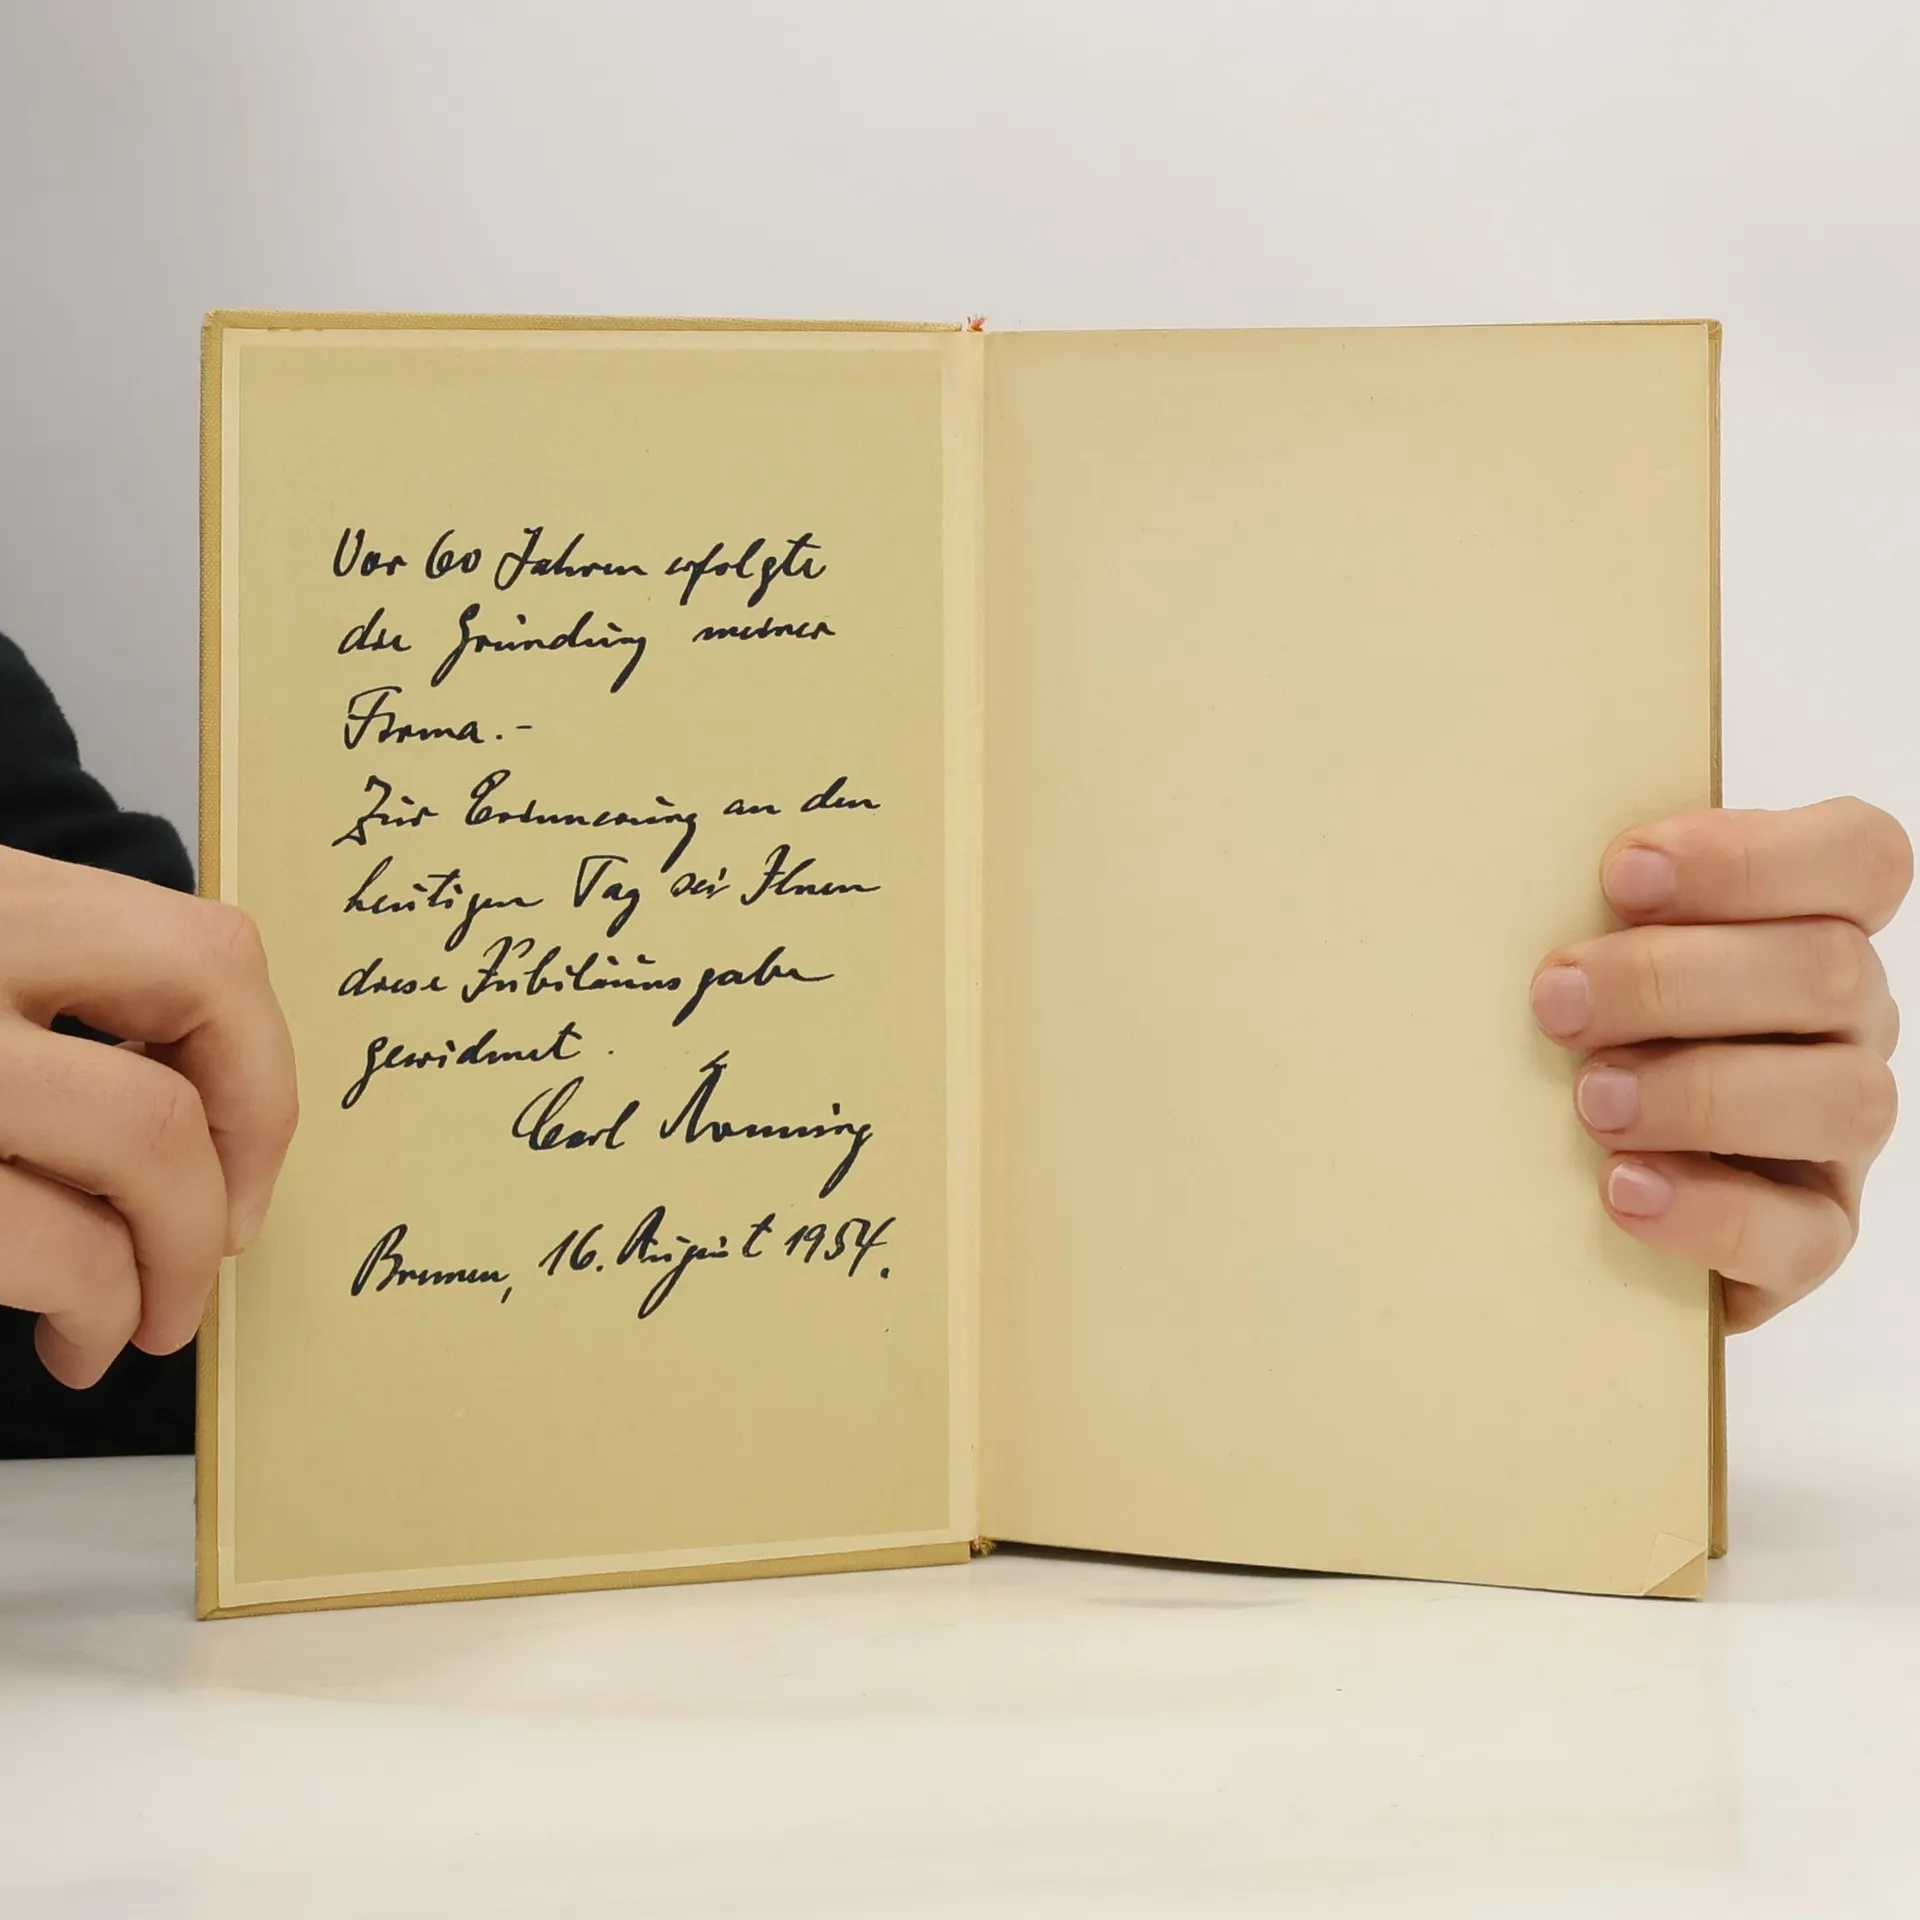 Vor 60 Jahren erfolgte
die Gründung meiner
Firma.-
Zur Erinnerung an den
heutigen Tag sei Ihnen
diese Jubiläumsgabe
gewidmet.
Carl Ronning
Bremen, 16. August 1954.